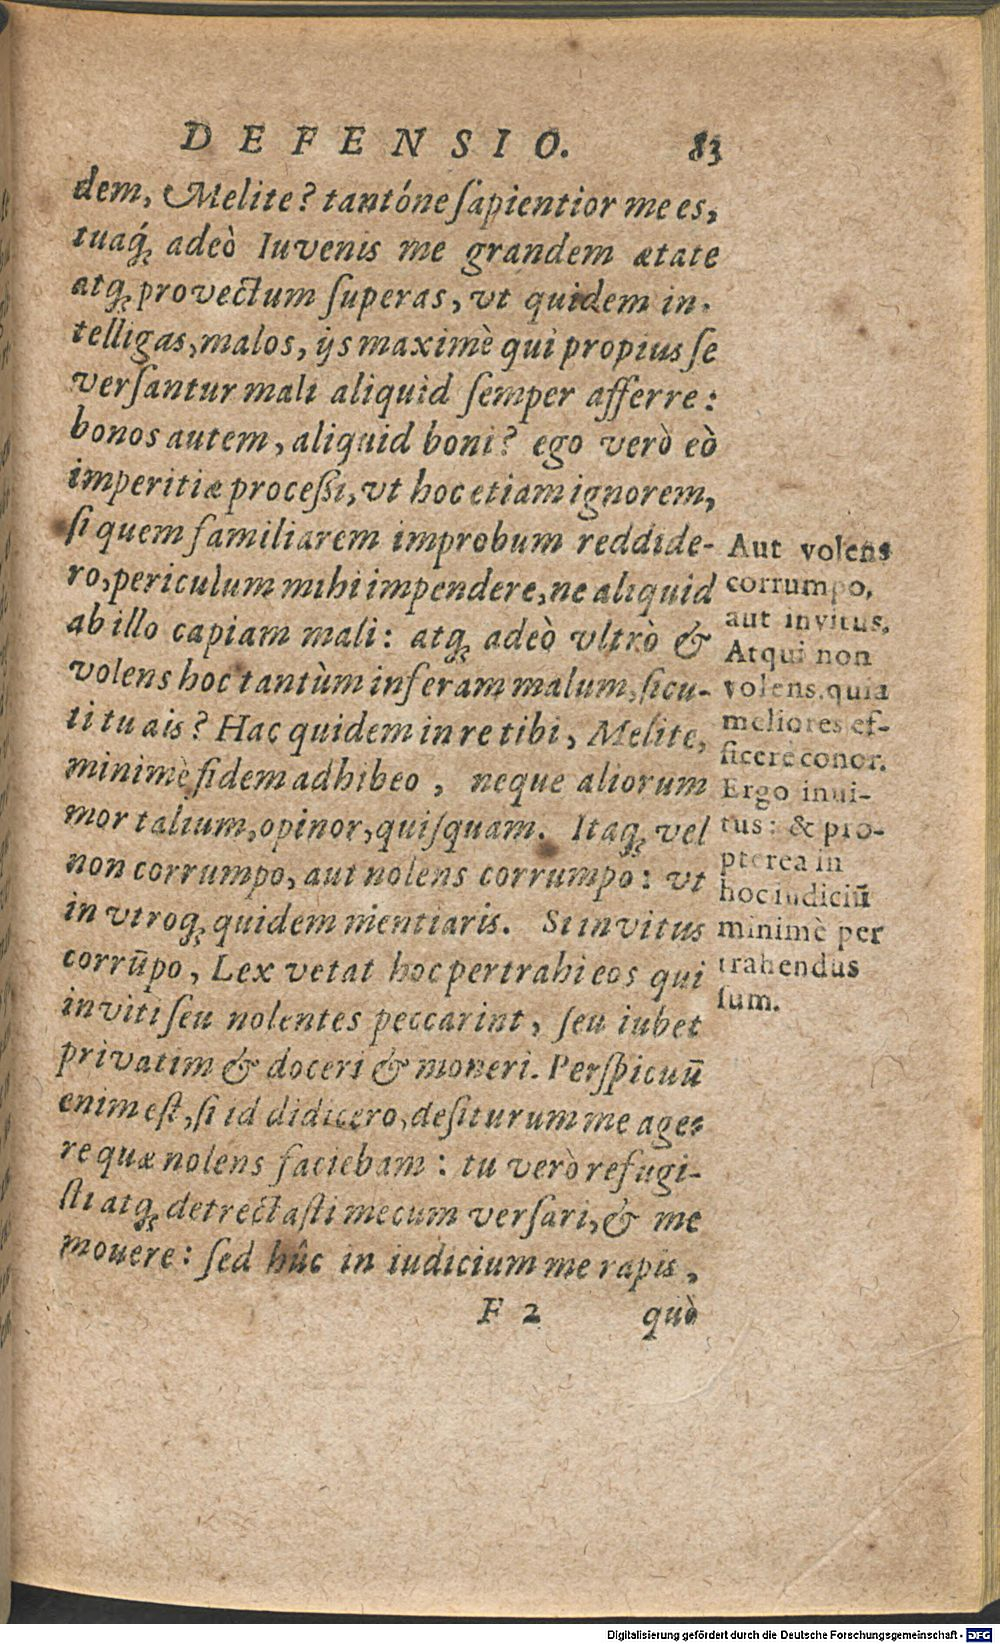 DEFENSIO. 83
dem, Melite? tantóne ſapientior me es,
tuaq́; adeò Iuvenis me grandem ætate
atq; provectum ſuperas, vt quidem in-
telligas, malos, ijs maximè qui propius ſe
verſantur mali aliquid ſemper afferre:
bonos autem, aliquid boni? ego verò eò
imperitiæ proceſſi, vt hoc etiam ignorem,
ſi quem familiarem improbum reddide-
ro, periculum mihi impendere, ne aliquid
ab illo capiam mali: atq; adeò vltrò &
volens hoc tantùm inferam malum, ſicu-
ti tu ais? Hac quidem in re tibi, Melite,
minimè fidem adhibeo, neque aliorum
mortalium, opinor, quiſquam. Itaq; vel
non corrumpo, aut nolens corrumpo: vt
in vtroq; quidem mentiaris. Si invitus
corrũpo, Lex vetat hoc pertrahi eos qui
inviti ſeu nolentes peccarint, ſeu iubet
privatim & doceri & moneri. Perſpicuũ
enim eſt, ſi id didicero, deſiturum me age-
re quæ nolens faciebam: tu verò refugi-
ſti atq; detrectaſti mecum verſari, & me
mouere: ſed hûc in iudicium me rapis,
F 2 quò
Aut volens
corrumpo,
aut invitus.
Atqui non
volens, quia
meliores ef-
ficere conor.
Ergo inui-
tus: & pro-
pterea in
hoc iudiciũ
minimè per
trahendus
ſum.
Digitalisierung gefördert durch die Deutsche Forschungsgemeinschaft - DFG